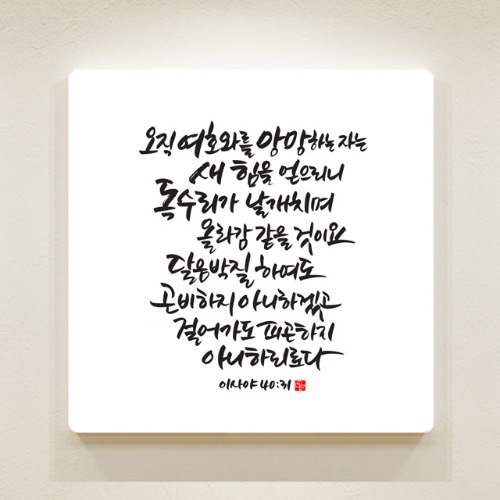 오직 여호와를 앙망하는 자는
새 힘을 얻으리니
독수리가 날개치며
올라감 같을 것이요
달음박질 하여도
곤비하지 아니하겠고
걸어가도 피곤하지
아니하리로다
이사야 40:31